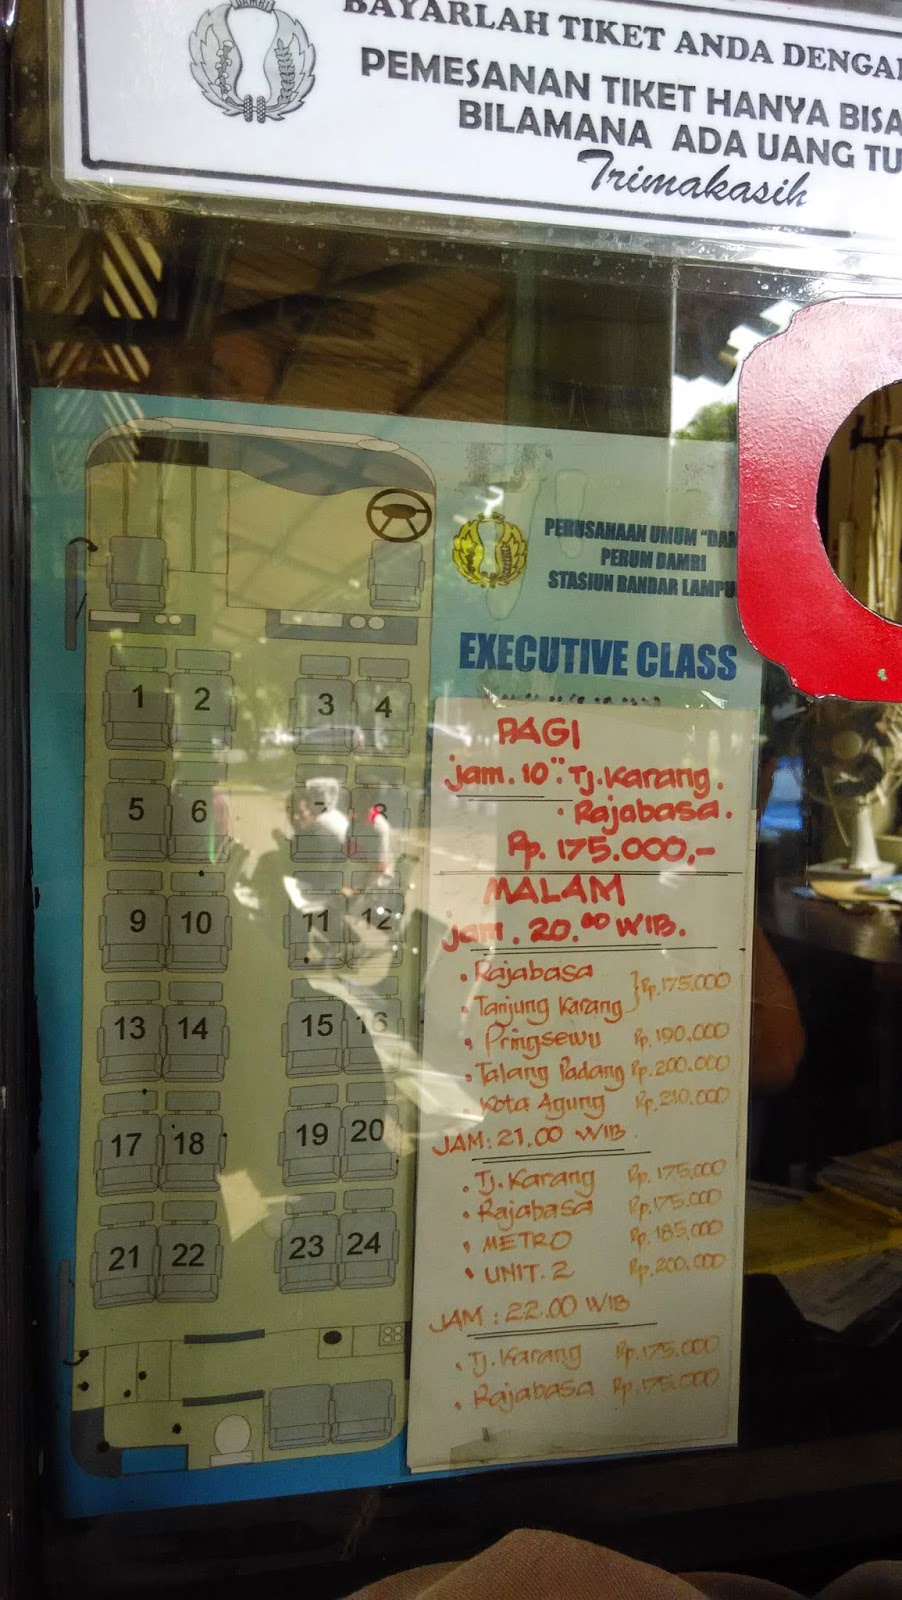 DAMRI
BAYARLAH TIKET ANDA DENGAN
PEMESANAN TIKET HANYA BISA
BILAMANA ADA UANG TU
Trimakasih
PERUSAHAAN UMUM "DA
PERUM DAMRI
STASIUN BANDAR LAMPU
EXECUTIVE CLASS
1 2 3 4
5 6 7 8
9 10 11 12
13 14 15 16
17 18 19 20
21 22 23 24
PAGI
jam. 10°° Tj. Karang.
Rajabasa.
Rp. 175.000,-
MALAM
jam. 20.00 WIB.
• Rajabasa
• Tanjung Karang } Rp. 175.000
• Pringsewu Rp. 190.000
• Talang Padang Rp. 200.000
• Kota Agung Rp. 210.000
JAM : 21.00 WIB
• Tj. Karang Rp. 175.000
• Rajabasa Rp. 175.000
• METRO Rp. 185.000
• UNIT. 2 Rp. 200.000
JAM : 22.00 WIB
• Tj. Karang Rp. 175.000
• Rajabasa Rp. 175.000